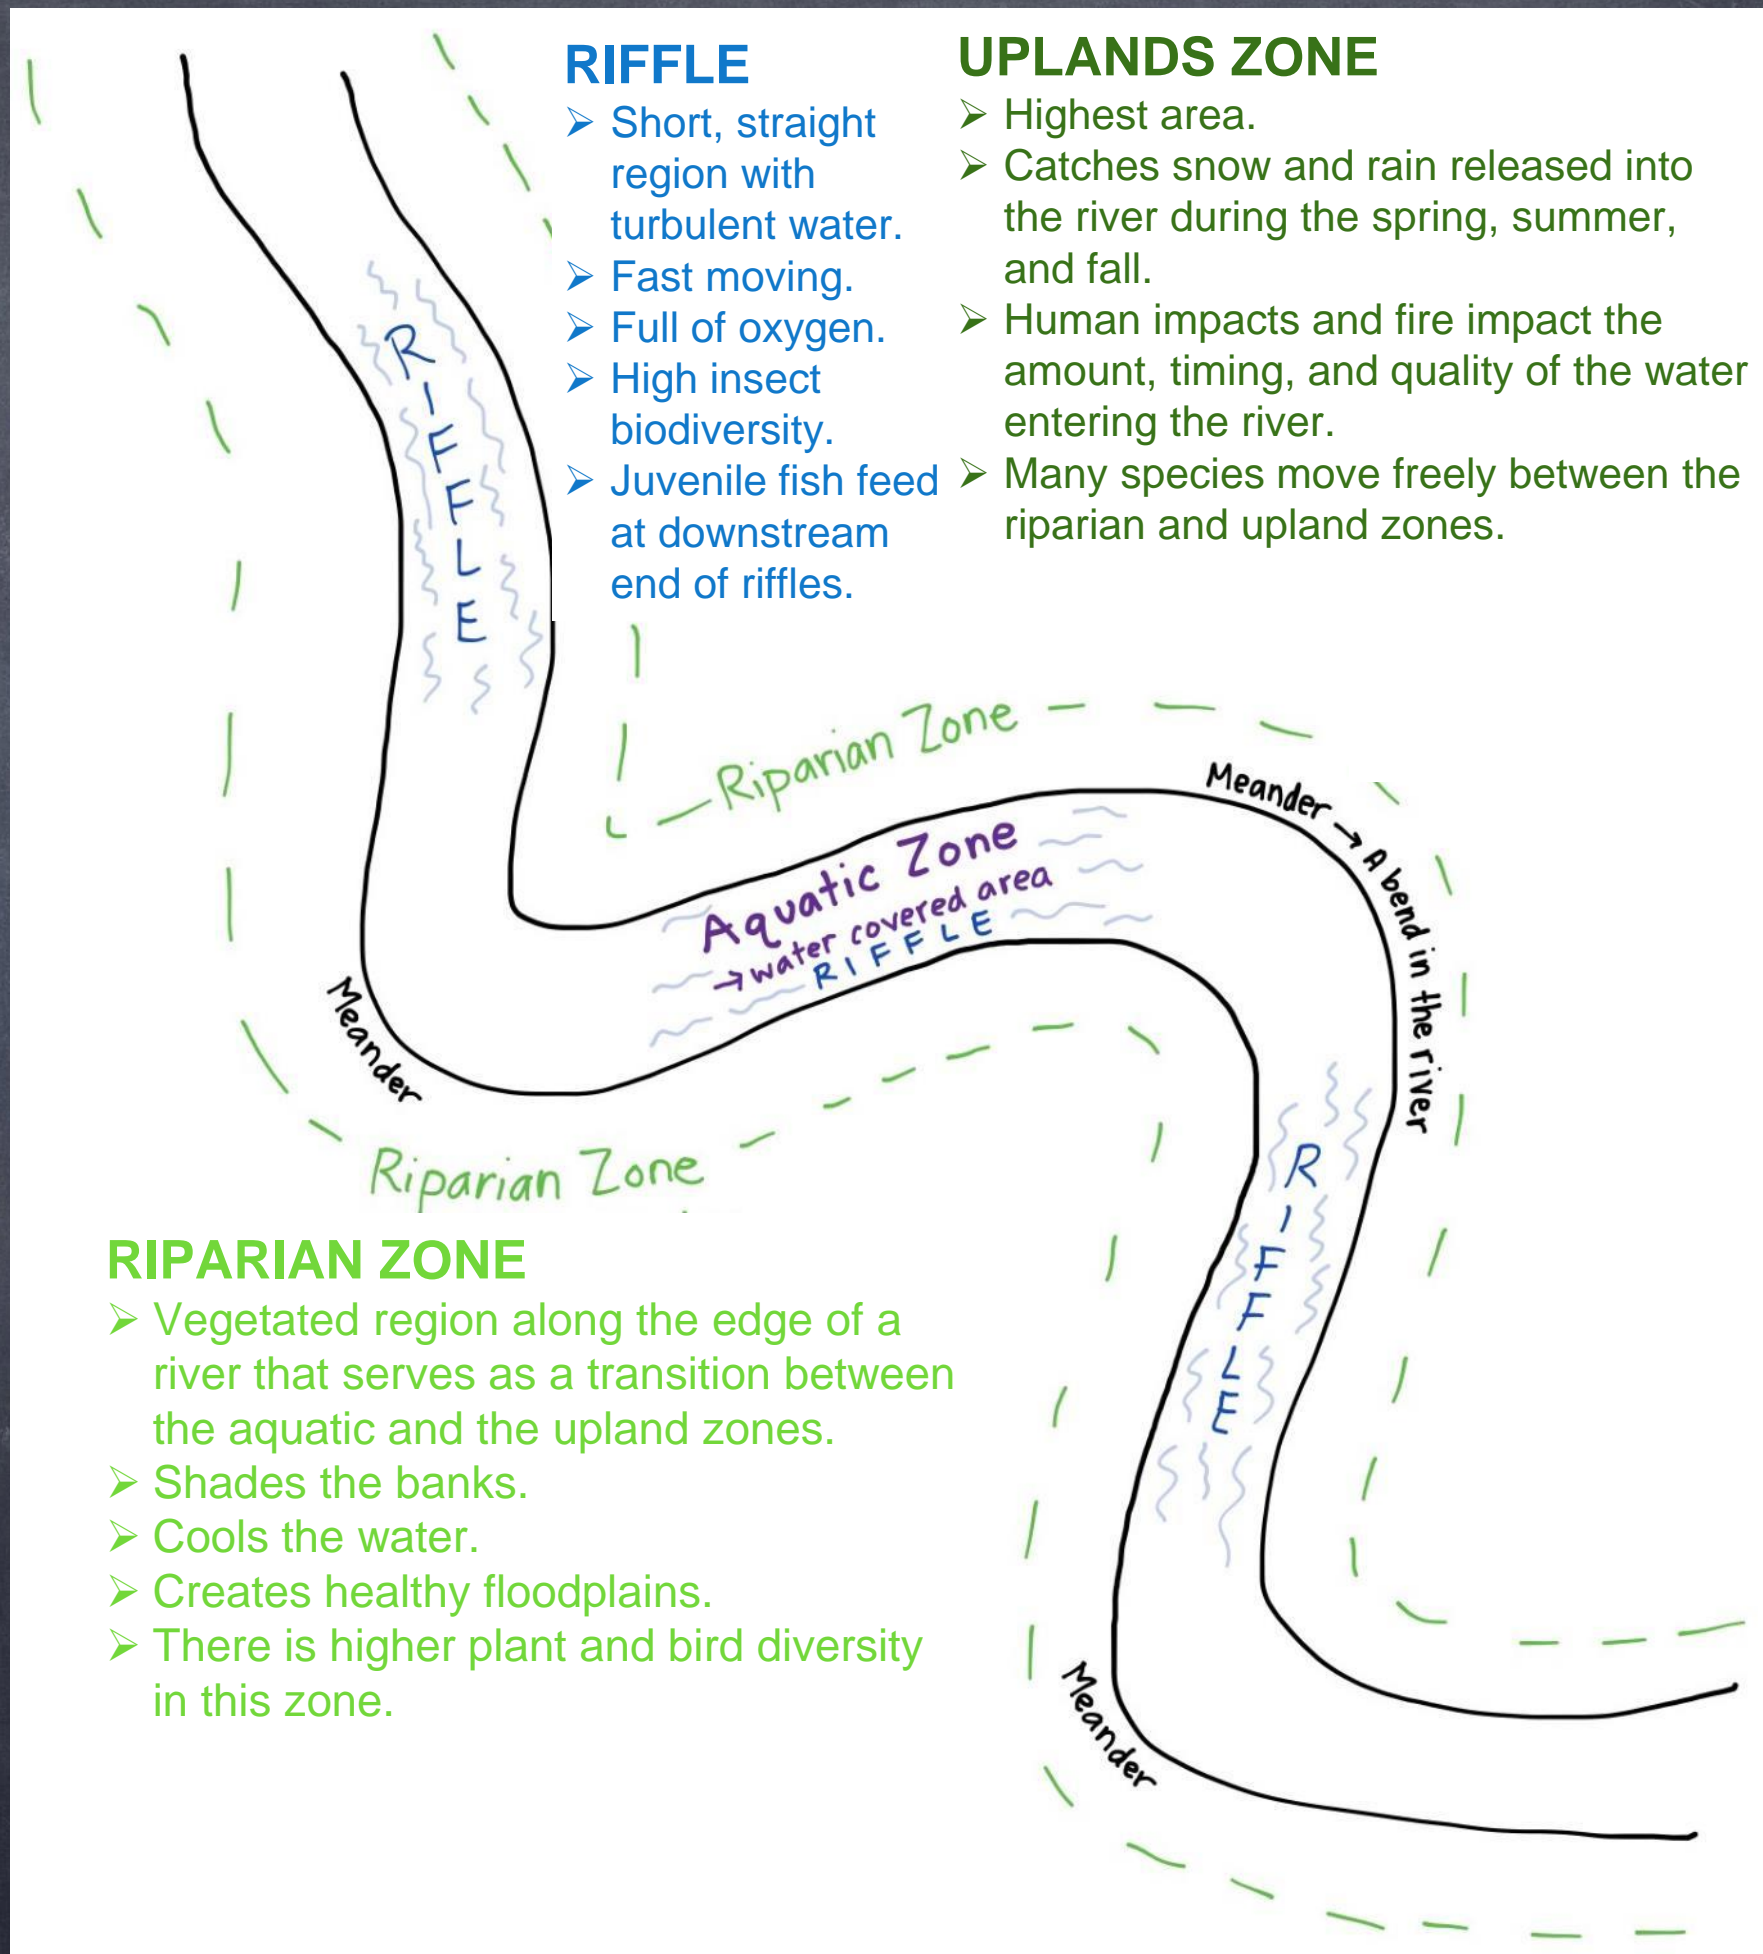 RIFFLE
➢ Short, straight
region with
turbulent water.
➢ Fast moving.
➢ Full of oxygen.
➢ High insect
biodiversity.
➢ Juvenile fish feed
at downstream
end of riffles.
UPLANDS ZONE
➢ Highest area.
➢ Catches snow and rain released into
the river during the spring, summer,
and fall.
➢ Human impacts and fire impact the
amount, timing, and quality of the water
entering the river.
➢ Many species move freely between the
riparian and upland zones.
RIFFLE
Riparian Zone
Meander → A bend in the river
Aquatic Zone
→ water covered area
RIFFLE
Meander
Riparian Zone
RIFFLE
RIPARIAN ZONE
➢ Vegetated region along the edge of a
river that serves as a transition between
the aquatic and the upland zones.
➢ Shades the banks.
➢ Cools the water.
➢ Creates healthy floodplains.
➢ There is higher plant and bird diversity
in this zone.
Meander